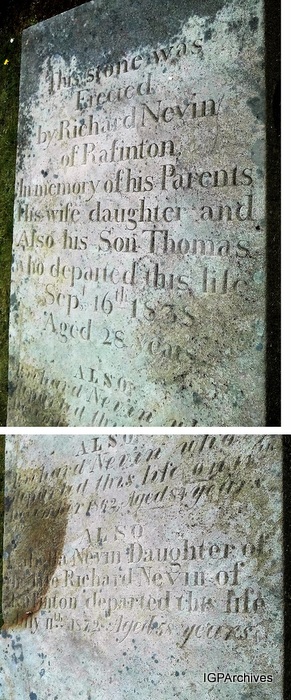 This stone was
Erected
by Richard Nevin
of Rafinton,
In memory of his Parents
His wife daughter and
Also his Son Thomas
who departed this life
Sep.t 16th 1838
Aged 28 years
ALSO
Richard Nevin who
departed this life
ALSO
Richard Nevin who
departed this life
Aged years
ALSO
Nevin Daughter of
Richard Nevin of
Rafinton departed this life
11th Aged years
IGPArchives